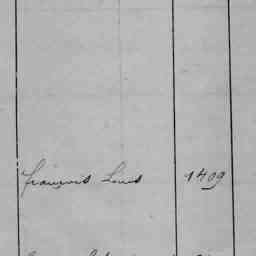 françois Louis 1409